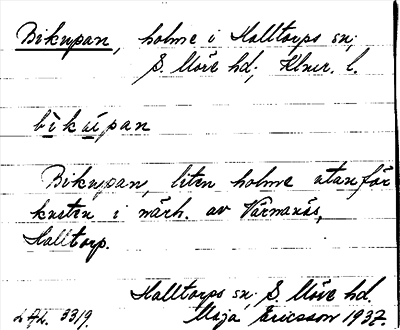 Bikupan, holme i Halltorps sn;
S. Möre hd; Klmr. l.
bìkúpan
Bikupan, liten holme utanför
kusten i närh. av Värnanäs,
Halltorp.
Halltorps sn S. Möre hd.
Maja Ericsson 1937.
3319.